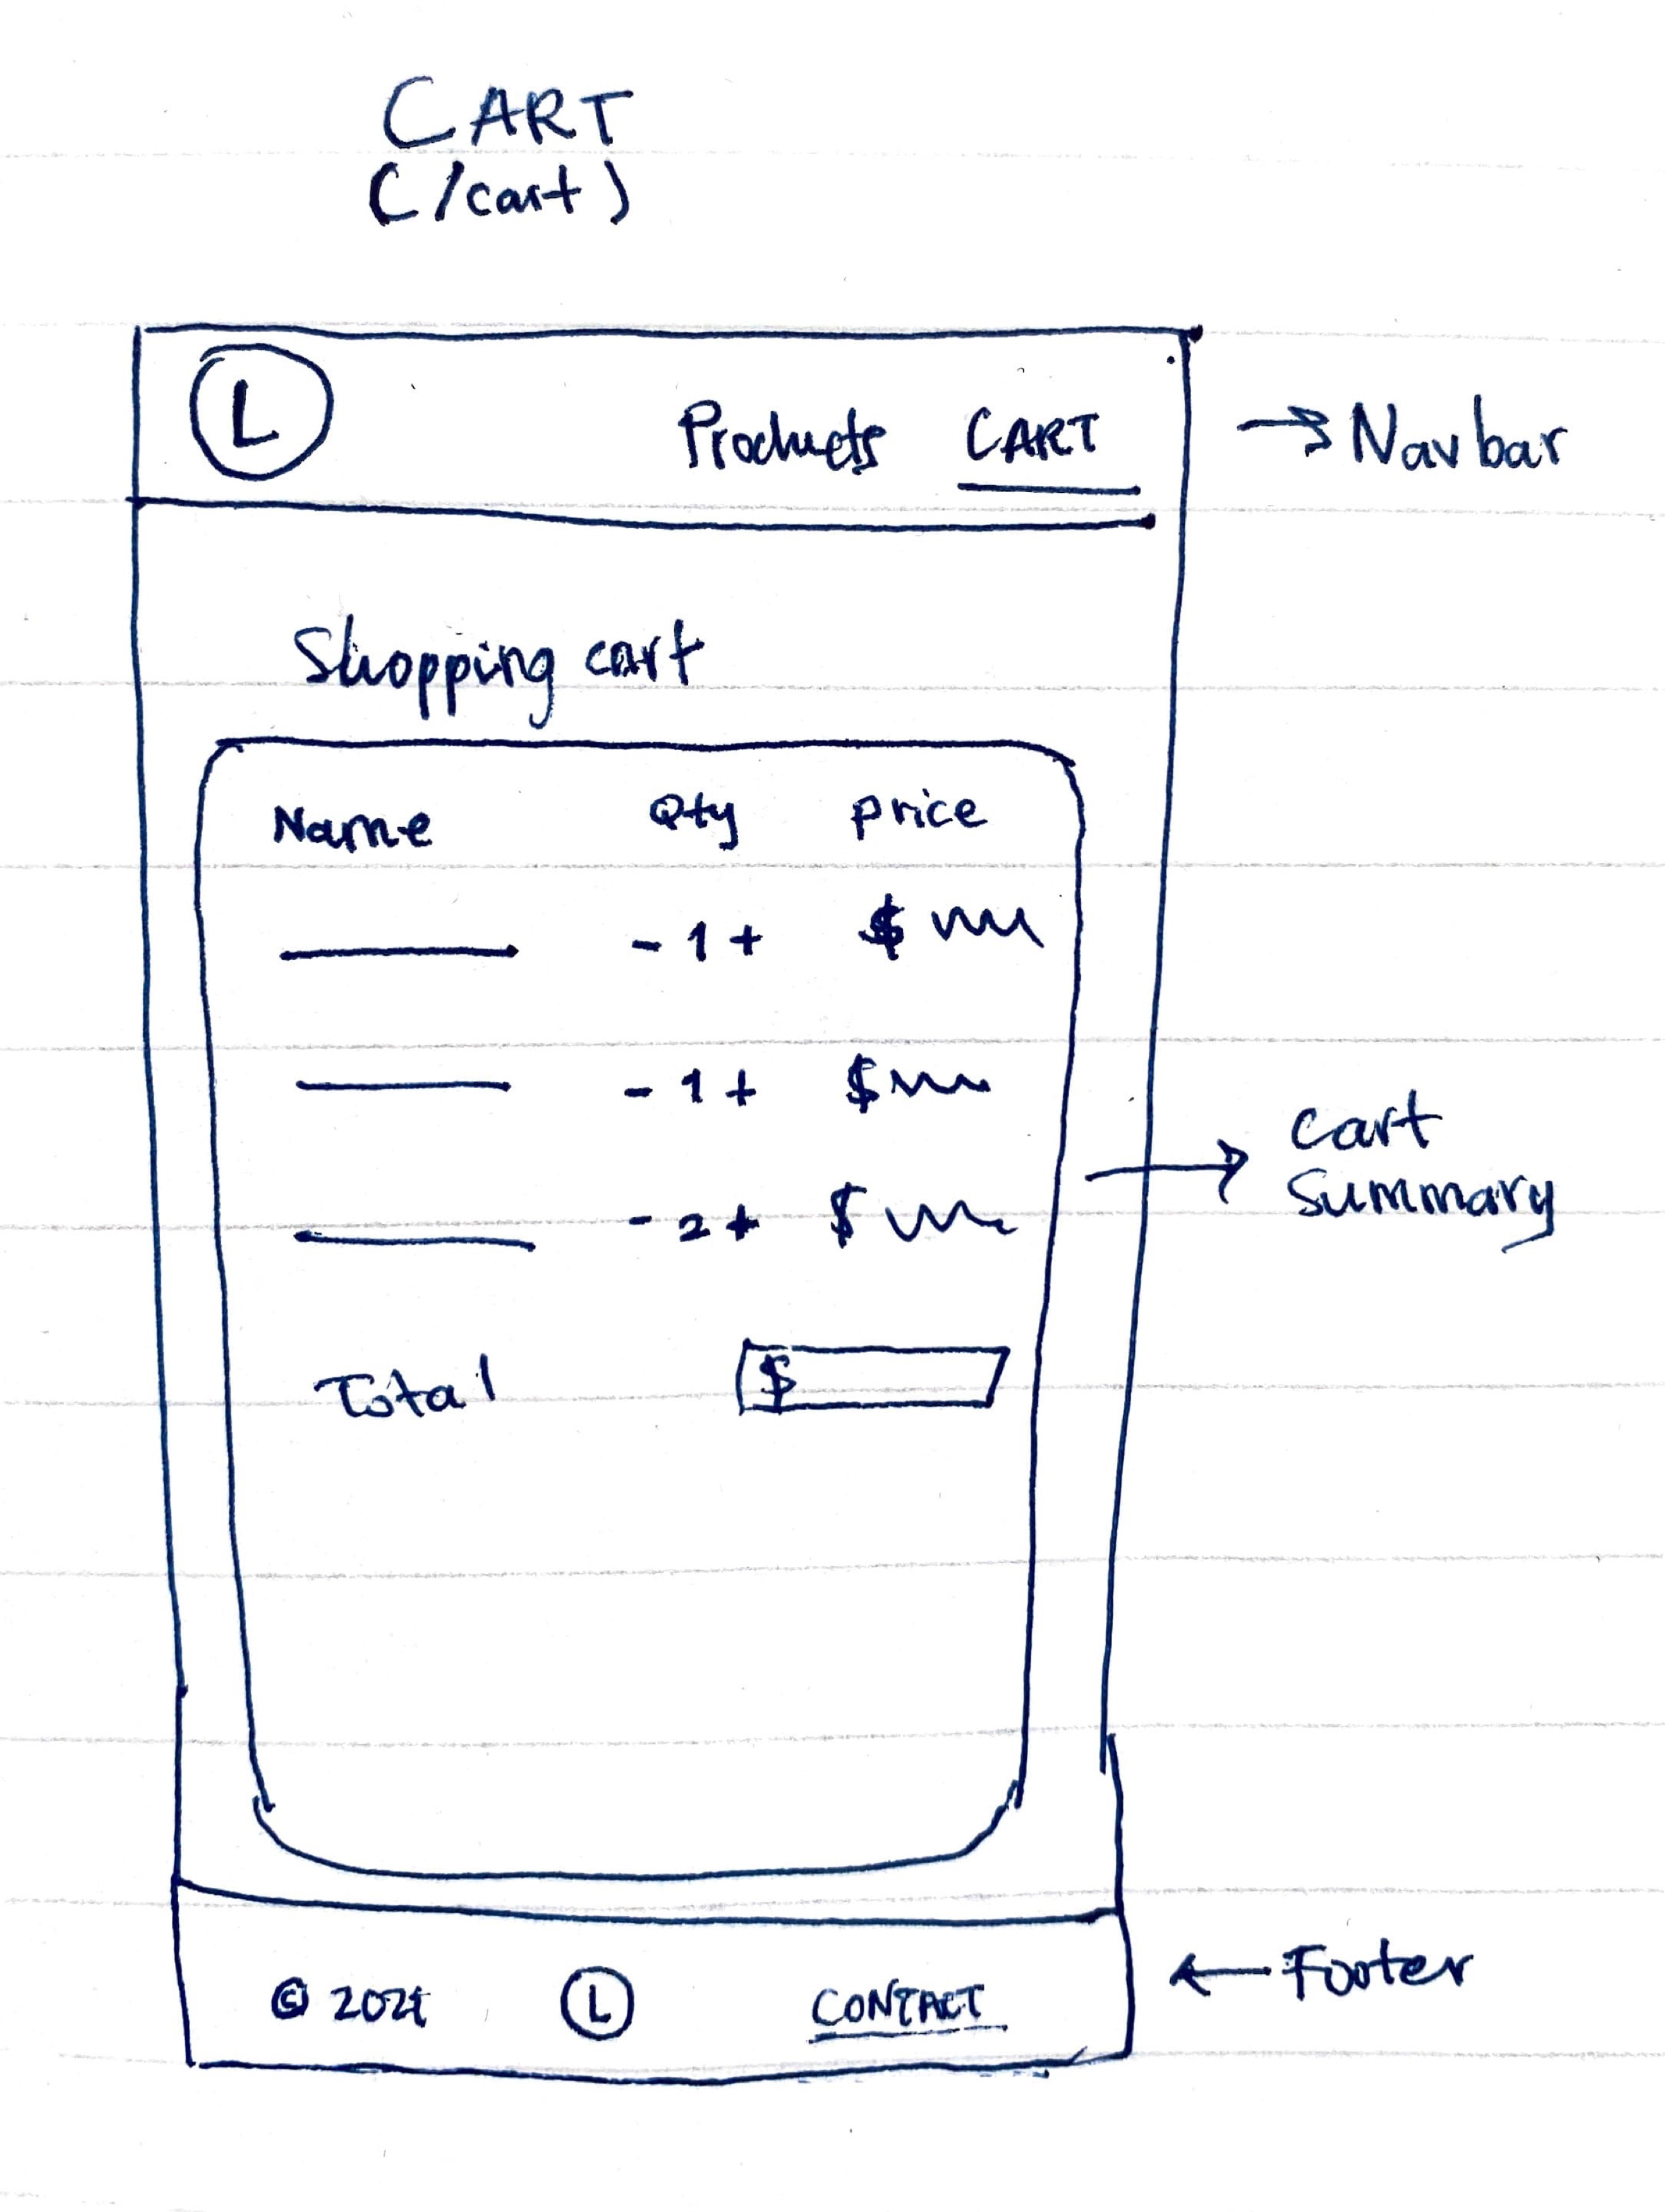 CART
(/cart)
L
Products CART
→ Navbar
Shopping cart
Name Qty price
- 1 + $
- 1 + $
→ cart
summary
- 2 + $
Total $
© 2024 L CONTACT
← Footer